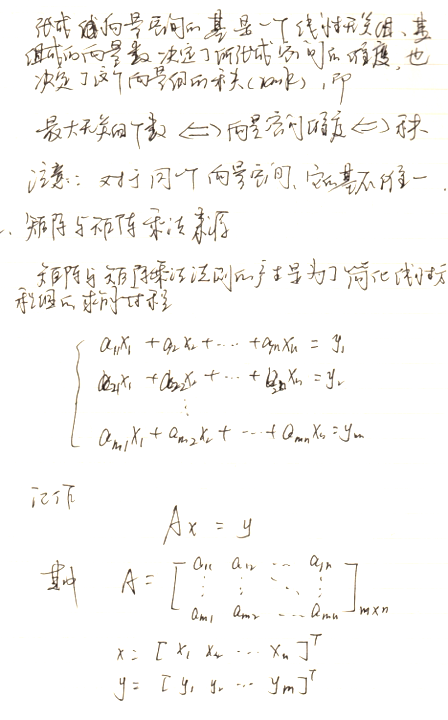 张成向量空间的基是一个线性无关组，其
组成的向量数决定了所张成空间的维度，也
决定了这个向量组的秩(rank)，即
最大无关组个数 <=> 向量空间维度 <=> 秩
注意：对于同一个向量空间，它的基不唯一
、矩阵与矩阵乘法来源
矩阵与矩阵乘法法则的产生是为了简化线性方
程组的求解过程
a₁₁x₁ + a₁₂x₂ + ⋯ + a₁ₙxₙ = y₁
a₂₁x₁ + a₂₂x₂ + ⋯ + a₂ₙxₙ = y₂
⋮
aₘ₁x₁ + aₘ₂x₂ + ⋯ + aₘₙxₙ = yₘ
记作
Ax = y
其中 A = [ a₁₁ a₁₂ ⋯ a₁ₙ
⋮ ⋮ ⋱ ⋮
aₘ₁ aₘ₂ ⋯ aₘₙ ]m×n
x = [ x₁ x₂ ⋯ xₙ ]ᵀ
y = [ y₁ y₂ ⋯ yₘ ]ᵀ